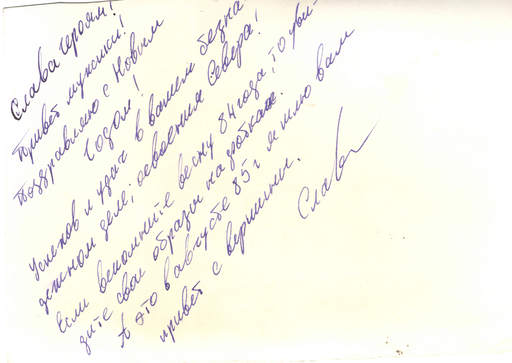 Слава героям!
Привет мужики!
Поздравляю с Новым
Годом!
Успехов и удач в вашем безна-
дежном деле; освоении Севера!
Если вспомните весну 84 года, то уви-
дите свои образы на фотках.
А это в августе 85 г я шлю вам
привет с вершины.
Слава